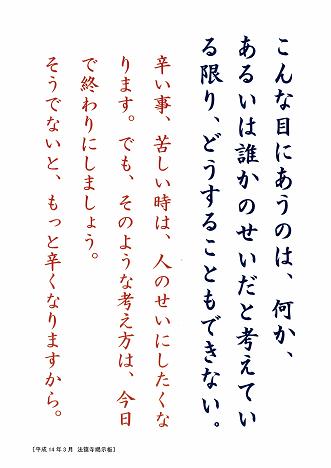 こんな目にあうのは、何か、
あるいは誰かのせいだと考えてい
る限り、どうすることもできない。
辛い事、苦しい時は、人のせいにしたくな
ります。でも、そのような考え方は、今日
で終わりにしましょう。
そうでないと、もっと辛くなりますから。
[平成14年3月 法嶺寺掲示板]